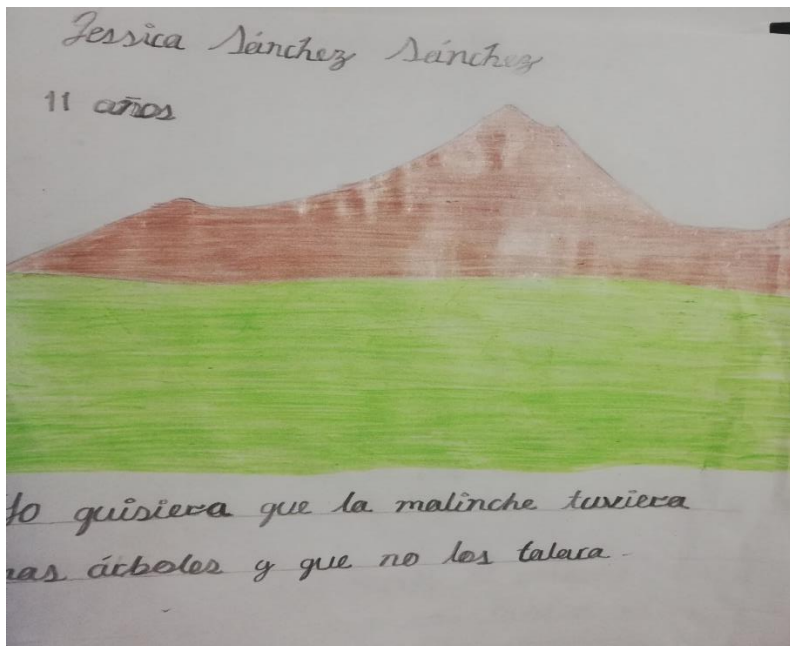 Jessica Sánchez Sánchez
11 años
Yo quisiera que la malinche tuviera
mas árboles y que no los talara